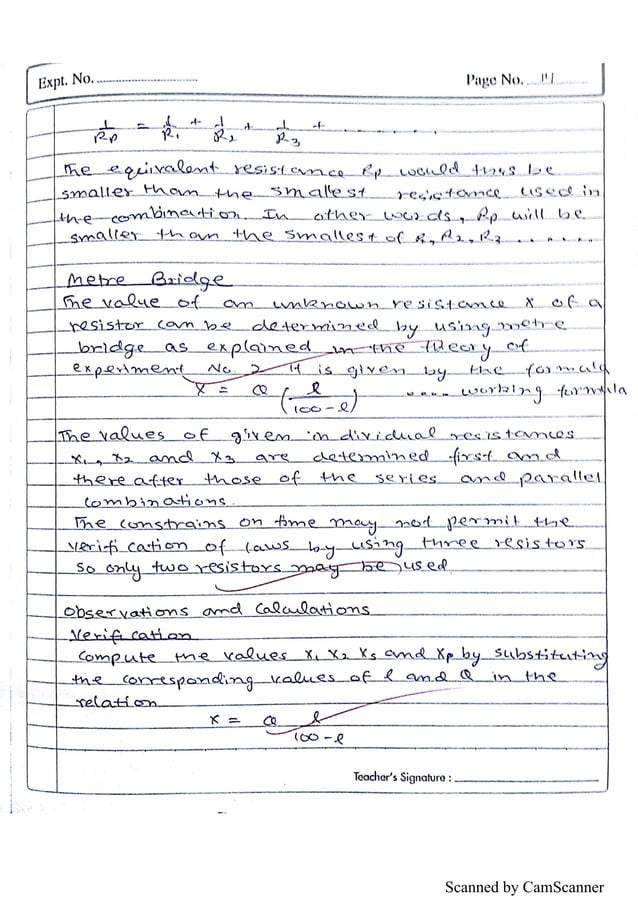 Expt. No.
Page No. 14
1/Rp = 1/R1 + 1/R2 + 1/R3 + .........
The equivalent resistance Rp would thus be
smaller than the smallest resistance used in
the combination. In other words, Rp will be
smaller than the smallest of R, R2, R3 ......
Metre Bridge
The value of an unknown resistance X of a
resistor can be determined by using metre
bridge as explained in the theory of
experiment No. 2 it is given by the formula
X = Q (l/100-l) .... working formula
The values of given individual resistances
X1, X2 and X3 are determined first and
there after those of the series and parallel
combinations.
The constrains on time may not permit the
verification of laws by using three resistors
so only two resistors may be used.
Observations and Calculations
Verification
Compute the values X1 X2 Xs and Xp by substituting
the corresponding values of l and Q in the
relation
X = Q l/100-l
Teacher's Signature :
Scanned by CamScanner